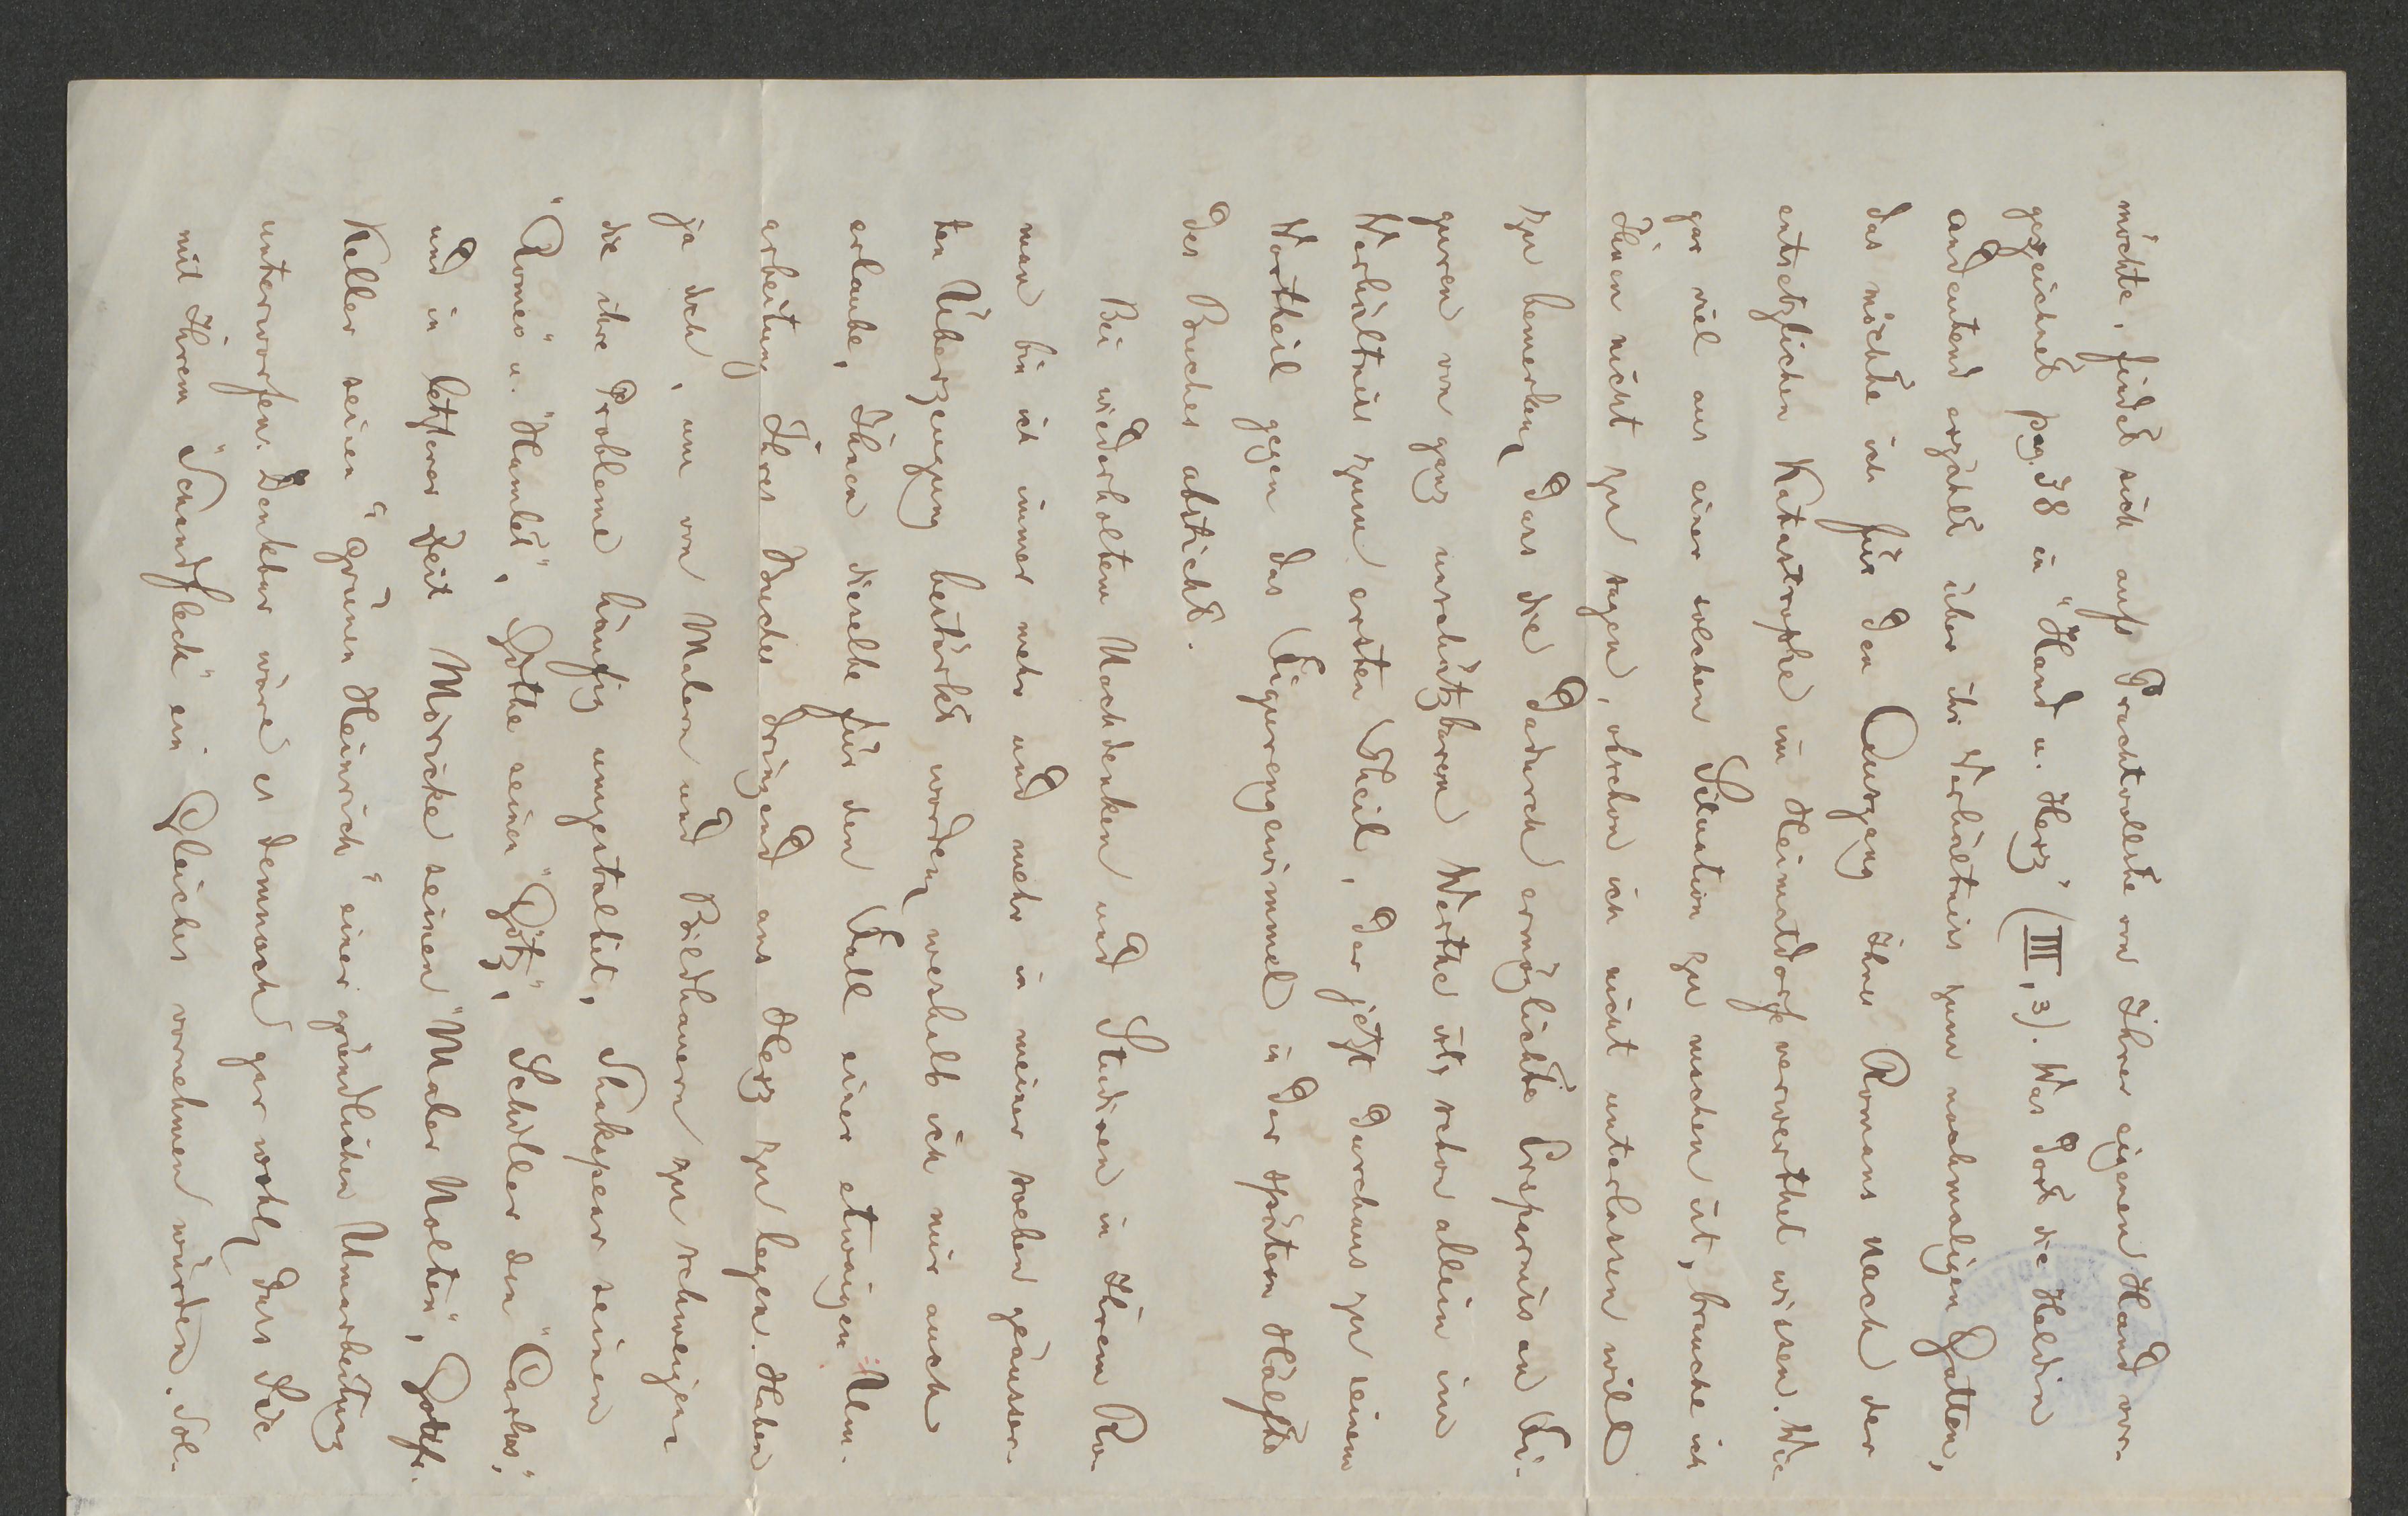 möchte, findet sich aufs Prachtvollste von Ihrer eigenen Hand vor-
gezeichnet pag. 38 in "Hand u. Herz" (III, 3). Was dort die Heldin
andeutend erzählt über ihr Verhältnis zum nachmaligen Gatten,
das möchte ich für den Ausgang Ihres Romans nach der
entsetzlichen Katastrophe im Heimatdorfe verwerthet wissen. Wie
gar viel aus einer solchen Situation zu machen ist, brauche ich
Ihnen nicht zu sagen, obschon ich nicht unterlassen will
zu bemerken, dass die dadurch ermöglichte Ersparnis an Fi-
guren von ganz unschätzbarem Werthe ist, schon allein im
Verhältnis zum ersten Theil, der jetzt durchaus zu seinem
Vortheil gegen das Figurengewimmel in der späten Hälfte
des Buches absticht.
Bei wiederholtem Nachdenken und Studiren in Ihrem Ro-
man bin ich immer mehr und mehr in meiner soeben geäusser-
ten Überzeugung bestärkt worden, weshalb ich mir auch
erlaube, Ihnen dieselbe für den Fall einer etwaigen Um-
arbeitung Ihres Buches dringend ans Herz zu legen. Haben
ja doch, um von Malern und Bildhauern zu schweigen
die ihre Probleme häufig umgestaltet, Shakspear seinen
"Romeo" u. "Hamlet", Göthe seinen "Götz", Schiller den "Carlos",
und in letzterer Zeit Möricke seinen "Maler Nolten", Gottfr.
Keller seinen "grünen Heinrich" einer gründlichen Umarbeitung
unterworfen. Denkbar wäre es demnach gar wohl, dass Sie
mit Ihrem "Schandfleck" ein Gleiches vornehmen würden. Sol-